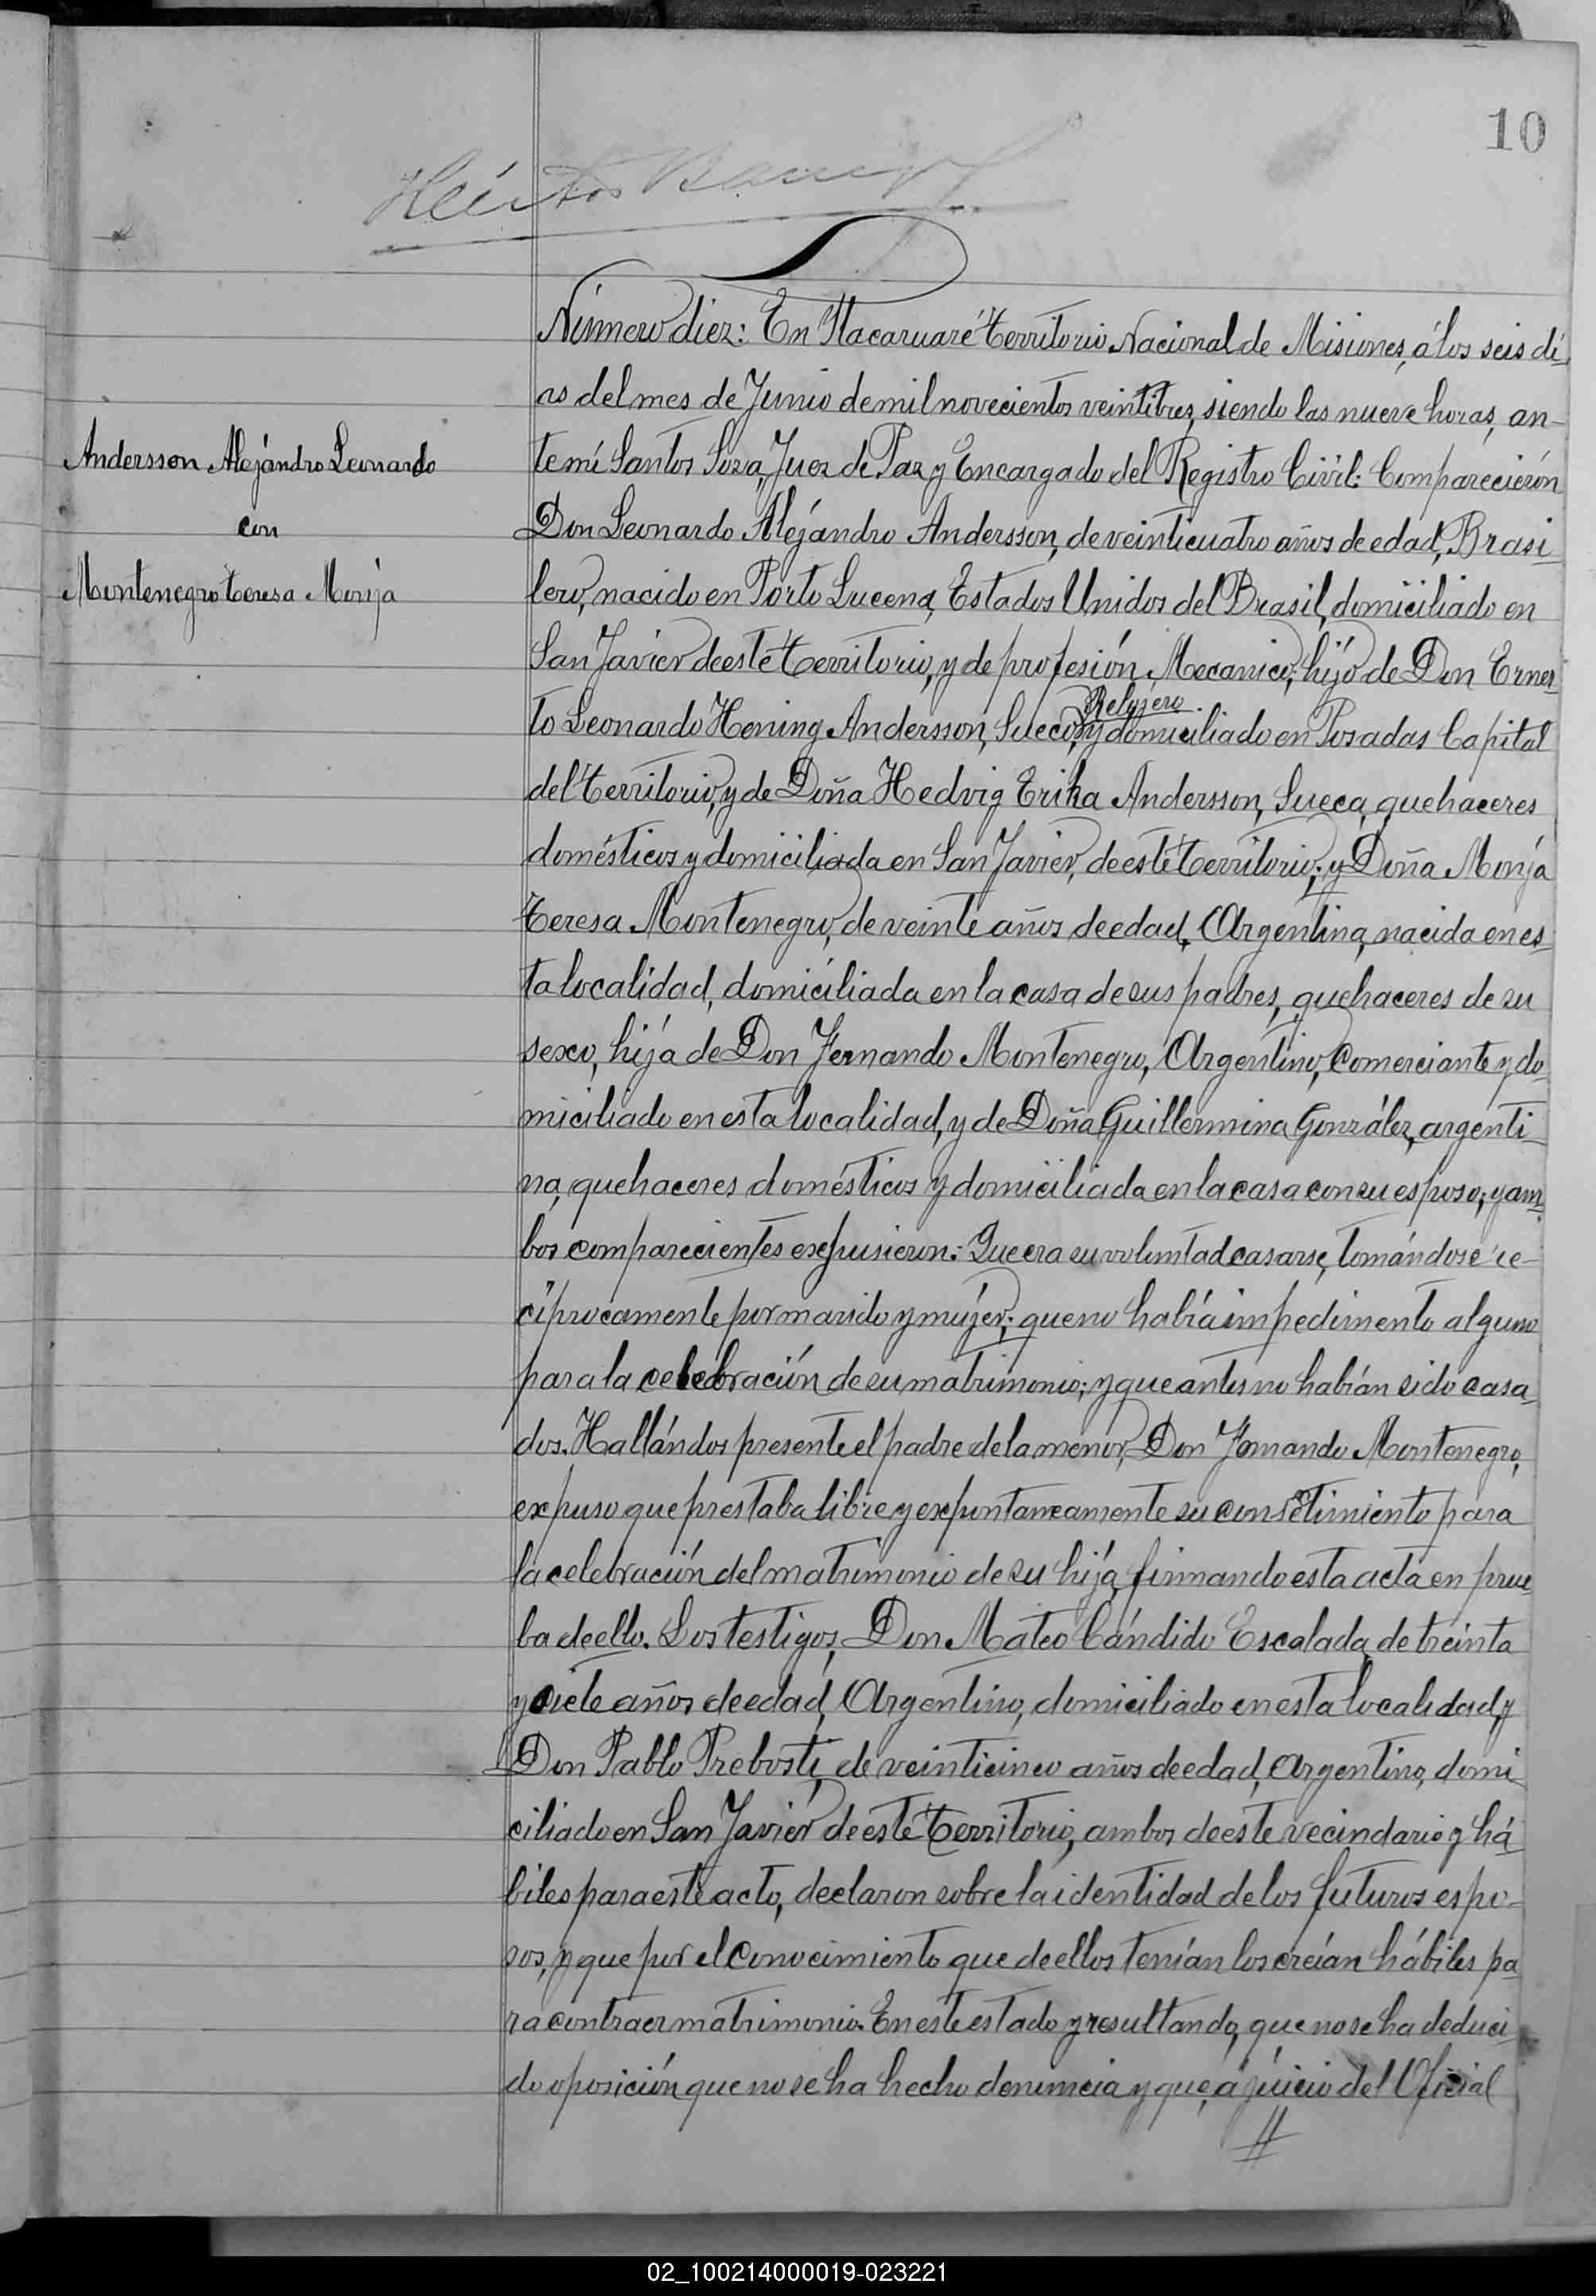 10
Héctor
Número diez: En Itacaruaré territorio Nacional de Misiones, á los seis dí-
as del mes de Junio de mil novecientos veintitres, siendo las nueve horas, an-
Andersson Alejándro Leonardo
te mí Santos Soza, Juez de Paz y Encargado del Registro Civil: Comparecierón
con
Don Leonardo Alejándro Andersson, de veinticuatro años de edad, Brasi-
Montenegro teresa Monja
lero, nacido en Porto Lucena, Estados Unidos del Brasil, domiciliado en
San Javier de este territorio, y de profesión Mecanico; hijo de Don Ernes-
Relojero.
to Leonardo Hening Andersson, Sueco, y domiciliado en Posadas Capital
del territorio, y de Doña Hedvig Erika Andersson, Sueca, quehaceres
domésticos y domiciliada en San Javier, de este territorio; y Doña Monja
teresa Montenegro, de veinte años de edad, Argentina, nacida en es-
ta localidad, domiciliada en la casa de sus padres, quehaceres de su
sexo, hija de Don Fernando Montenegro, Argentino, Comerciante y do-
miciliado en esta localidad, y de Doña Guillermina González, argenti-
na, quehaceres domésticos y domiciliada en la casa con su esposo; y am-
bos comparecientes expusieron: Que era su voluntad casarse, tomándose re-
cíprocamente por marido y mujer; que no había impedimento alguno
para la celebración de su matrimonio; y que antes no habían sido casa-
dos. Hallándos presente el padre de la menor, Don Fernando Montenegro,
expuso que prestaba libre y expontaneamente su consentimiento para
la celebración del matrimonio de su hija, firmando esta acta en prue-
ba de ello. Los testigos, Don Mateo Cándido Escalada, de treinta
y siete años de edad, Argentino, domiciliado en esta localidad, y
Don Pablo Prebosti, de veinticinco años de edad, Argentino, domi-
ciliado en San Javier de este territorio, ambos de este vecindario y há-
biles para este acto, declaron sobre la identidad de los futuros espo-
sos, y que por el conocimiento que de ellos tenían los creían hábiles pa-
ra contraer matrimonio. En este estado y resultando, que no se ha deduci-
do oposición que no se ha hecho denuncia y que, á juicio del Oficial
//
02_100214000019-023221